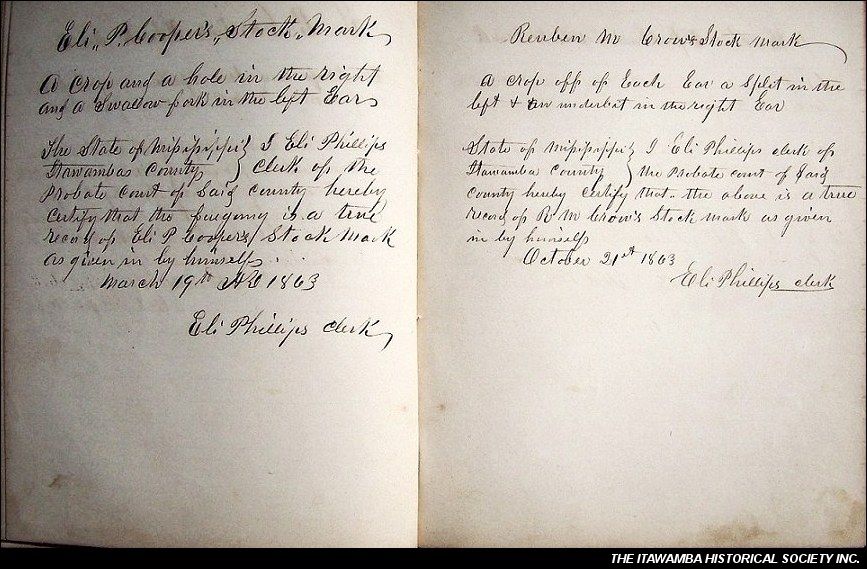 Eli P. Cooper's Stock Mark
A crop and a hole in the right
and a Swallow fork in the left Ear
The State of Mississippi } I Eli Phillips
Itawamba County } clerk of the
Probate Court of Said County hereby
certify that the is a true
record of Eli P Cooper's Stock Mark
as given in by himself
March 19th AD 1863
Eli Phillips clerk
Reuben M Crow's Stock Mark
A crop off of Each Ear a Split in the
left & an underbit in the right Ear
State of Mississippi } I Eli Phillips clerk of
Itawamba County } the Probate Court of Said
County hereby certify that the above is a true
record of R M Crow's Stock mark as given
in by himself
October 21st 1863
Eli Phillips clerk
THE ITAWAMBA HISTORICAL SOCIETY INC.